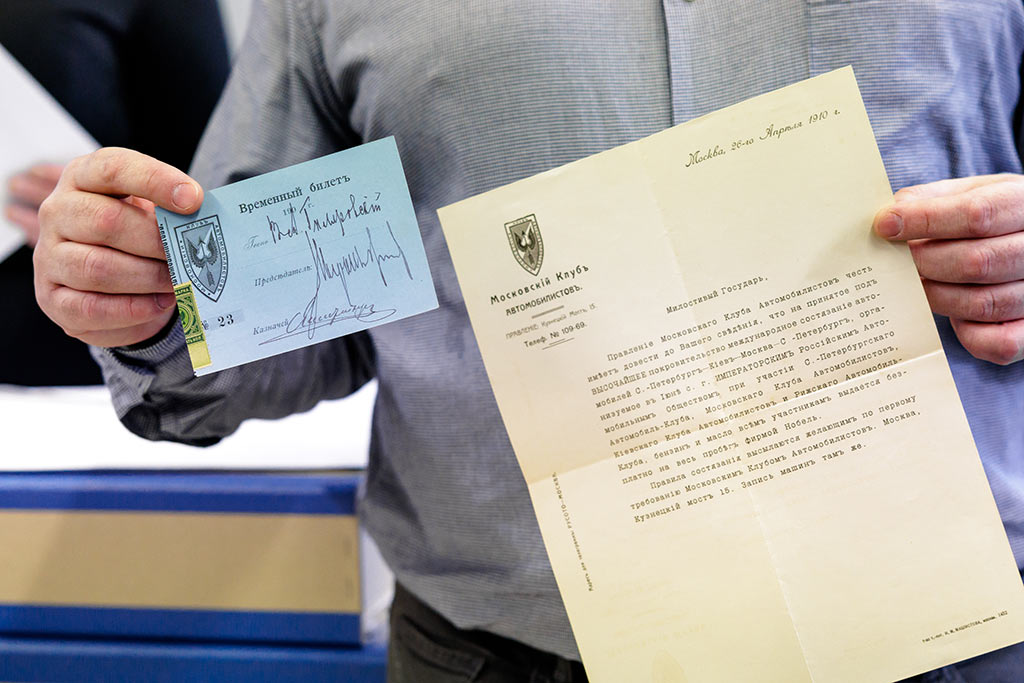 Временный билетъ
191 г.
Госп. В. А. Гиляровскій
Предсѣдатель:
Казначей
№ 23
Москва, 26-го Апрѣля 1910 г.
Московскій Клубъ
Автомобилистовъ.
ПРАВЛЕНІЕ: Кузнецкій Мостъ 15.
Телеф. № 109-69.
Милостивый Государь,
Правленіе Московскаго Клуба Автомобилистовъ честь
имѣетъ довести до Вашего свѣдѣнія, что на принятое подъ
ВЫСОЧАЙШЕЕ покровительство международное состязаніе авто-
мобилей С.-Петербургъ—Кіевъ—Москва—С.-Петербургъ, орга-
низуемое въ Іюнѣ б. г. ИМПЕРАТОРСКИМЪ Россійскимъ Авто-
мобильнымъ Обществомъ при участіи С.-Петербургскаго
Автомобиль-Клуба, Московскаго Клуба Автомобилистовъ,
Кіевскаго Клуба Автомобилистовъ и Рижскаго Автомобиль-
Клуба, бензинъ и масло всѣмъ участникамъ выдается без-
платно на весь пробѣгъ фирмой Нобель.
Правила состязанія высылаются желающимъ по первому
требованію Московскимъ Клубомъ Автомобилистовъ. Москва,
Кузнецкій мостъ 15. Запись машинъ тамъ же.